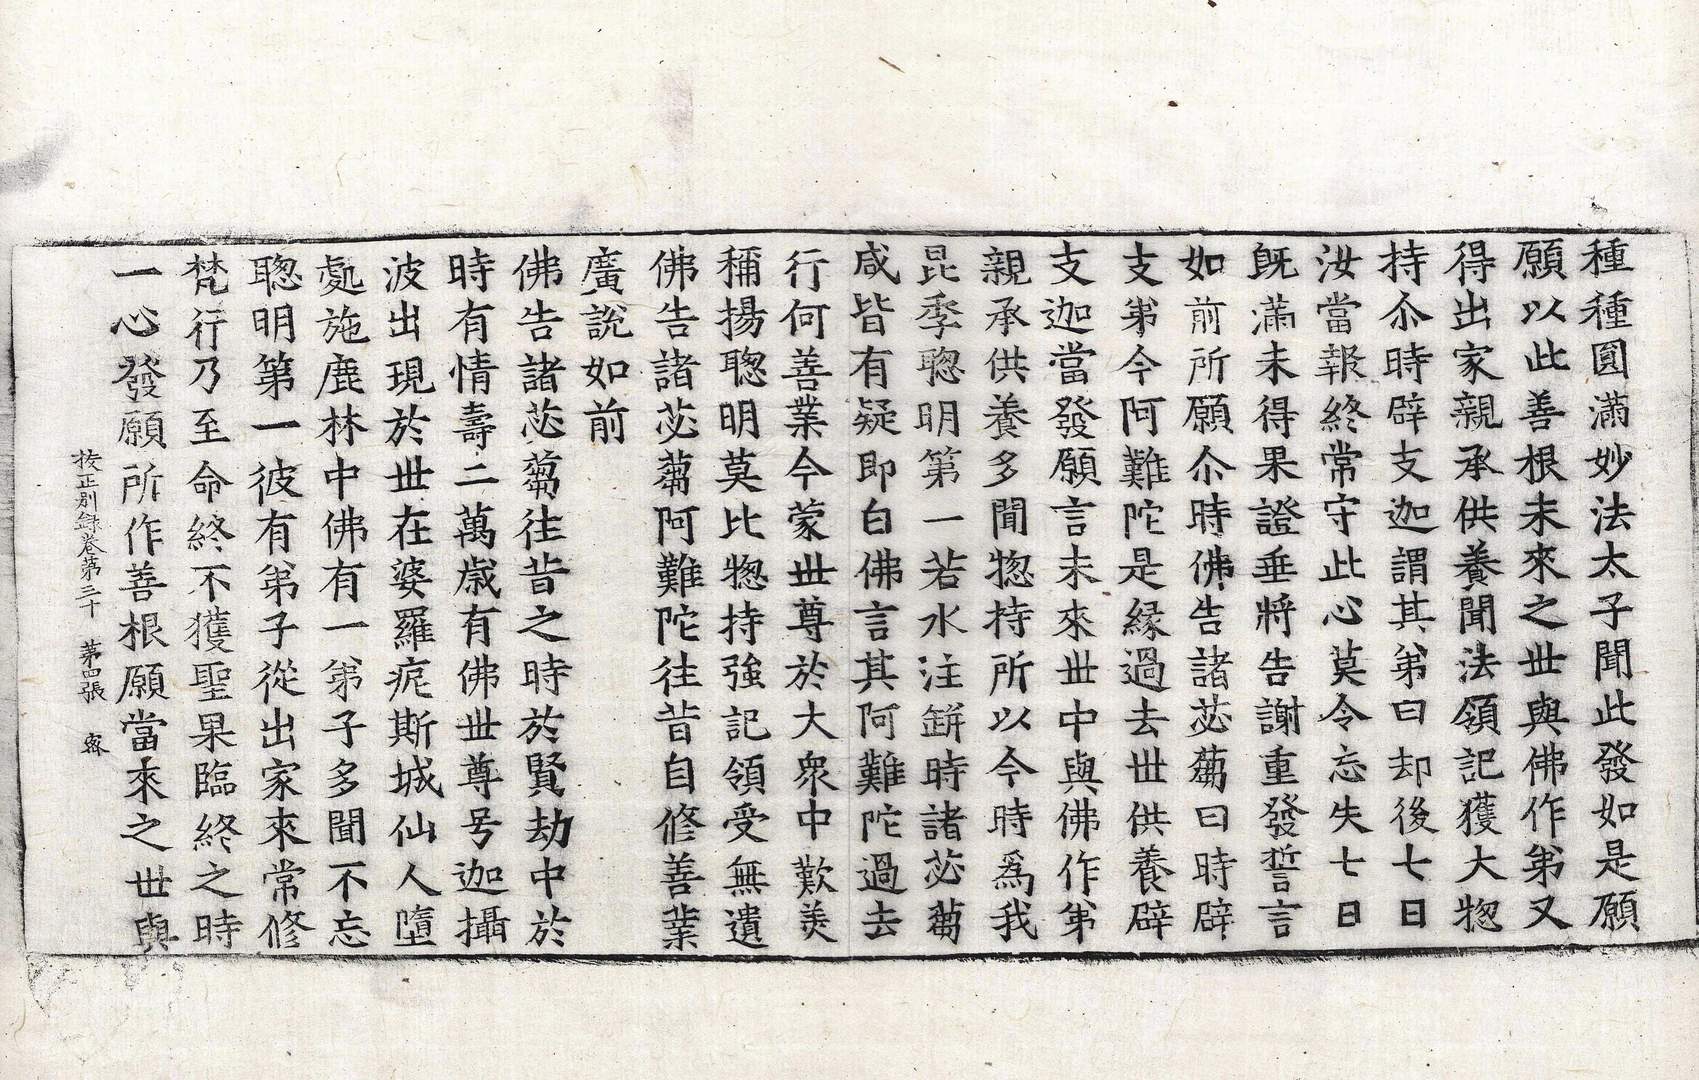 種種圓滿妙法太子聞此發如是願
願以此善根未來之世與佛作弟又
得出家親承供養聞法領記獲大惣
持尒時辟支迦謂其弟曰却後七日
汝當報終常守此心莫令忘失七日
旣滿未得果證垂將告謝重發誓言
如前所願尒時佛告諸苾蒭曰時辟
支弟今阿難陀是緣過去世供養辟
支迦當發願言未來世中與佛作弟
親承供養多聞惣持所以今時爲我
昆季聰明第一若水注缾時諸苾蒭
咸皆有疑即白佛言其阿難陀過去
行何善業今蒙世尊於大衆中歎羙
稱揚聰明莫比惣持強記領受無遺
佛告諸苾蒭阿難陀徃昔自修善業
廣說如前
佛告諸苾蒭徃昔之時於賢劫中於
時有情壽二萬歲有佛世尊号迦攝
波出現於世在婆羅痆斯城仙人墮
處施鹿林中佛有一弟子多聞不忘
聰明第一彼有弟子從出家來常修
梵行乃至命終不獲聖果臨終之時
一心發願所作善根願當來之世與
挍正別録卷第三十　第四張